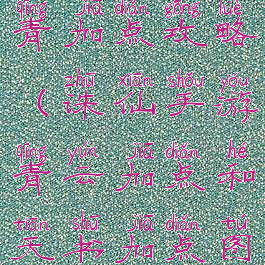 qīng jiā diǎn gōng lüè
青加点攻略
zhū xiān shǒu yóu
（诛仙手游
qīng yún jiā diǎn hé
青云加点和
tiān shū jiā diǎn tú
天书加点图